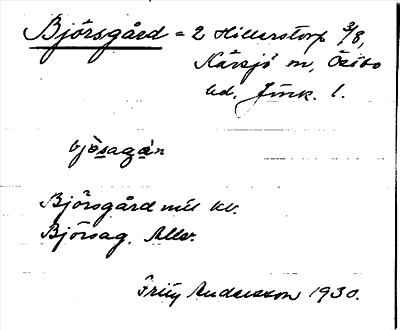 Björsgård = 2 Hillerstorp 3/8,
Kärsjö m, Östbo
hd, Jönk. l.
bjòsagán
Björsgård mil kv.
Björsag. Allv.
Friij Andersson 1930.